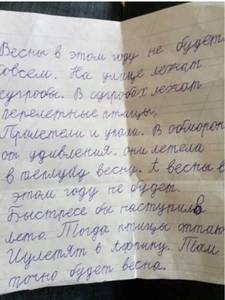 Весны в этом году не будет
совсем. На улице лежат
сугробы. В сугробах лежат
перелетные птицы,
Прилетели и упали. В обморок
от удивления. они летела
в теплую весну. А весны в
этом году не будет
Быстресе бы наступило
лето. Тогда птицы оттают
И улетят в Африку. Там
точно будет весна.